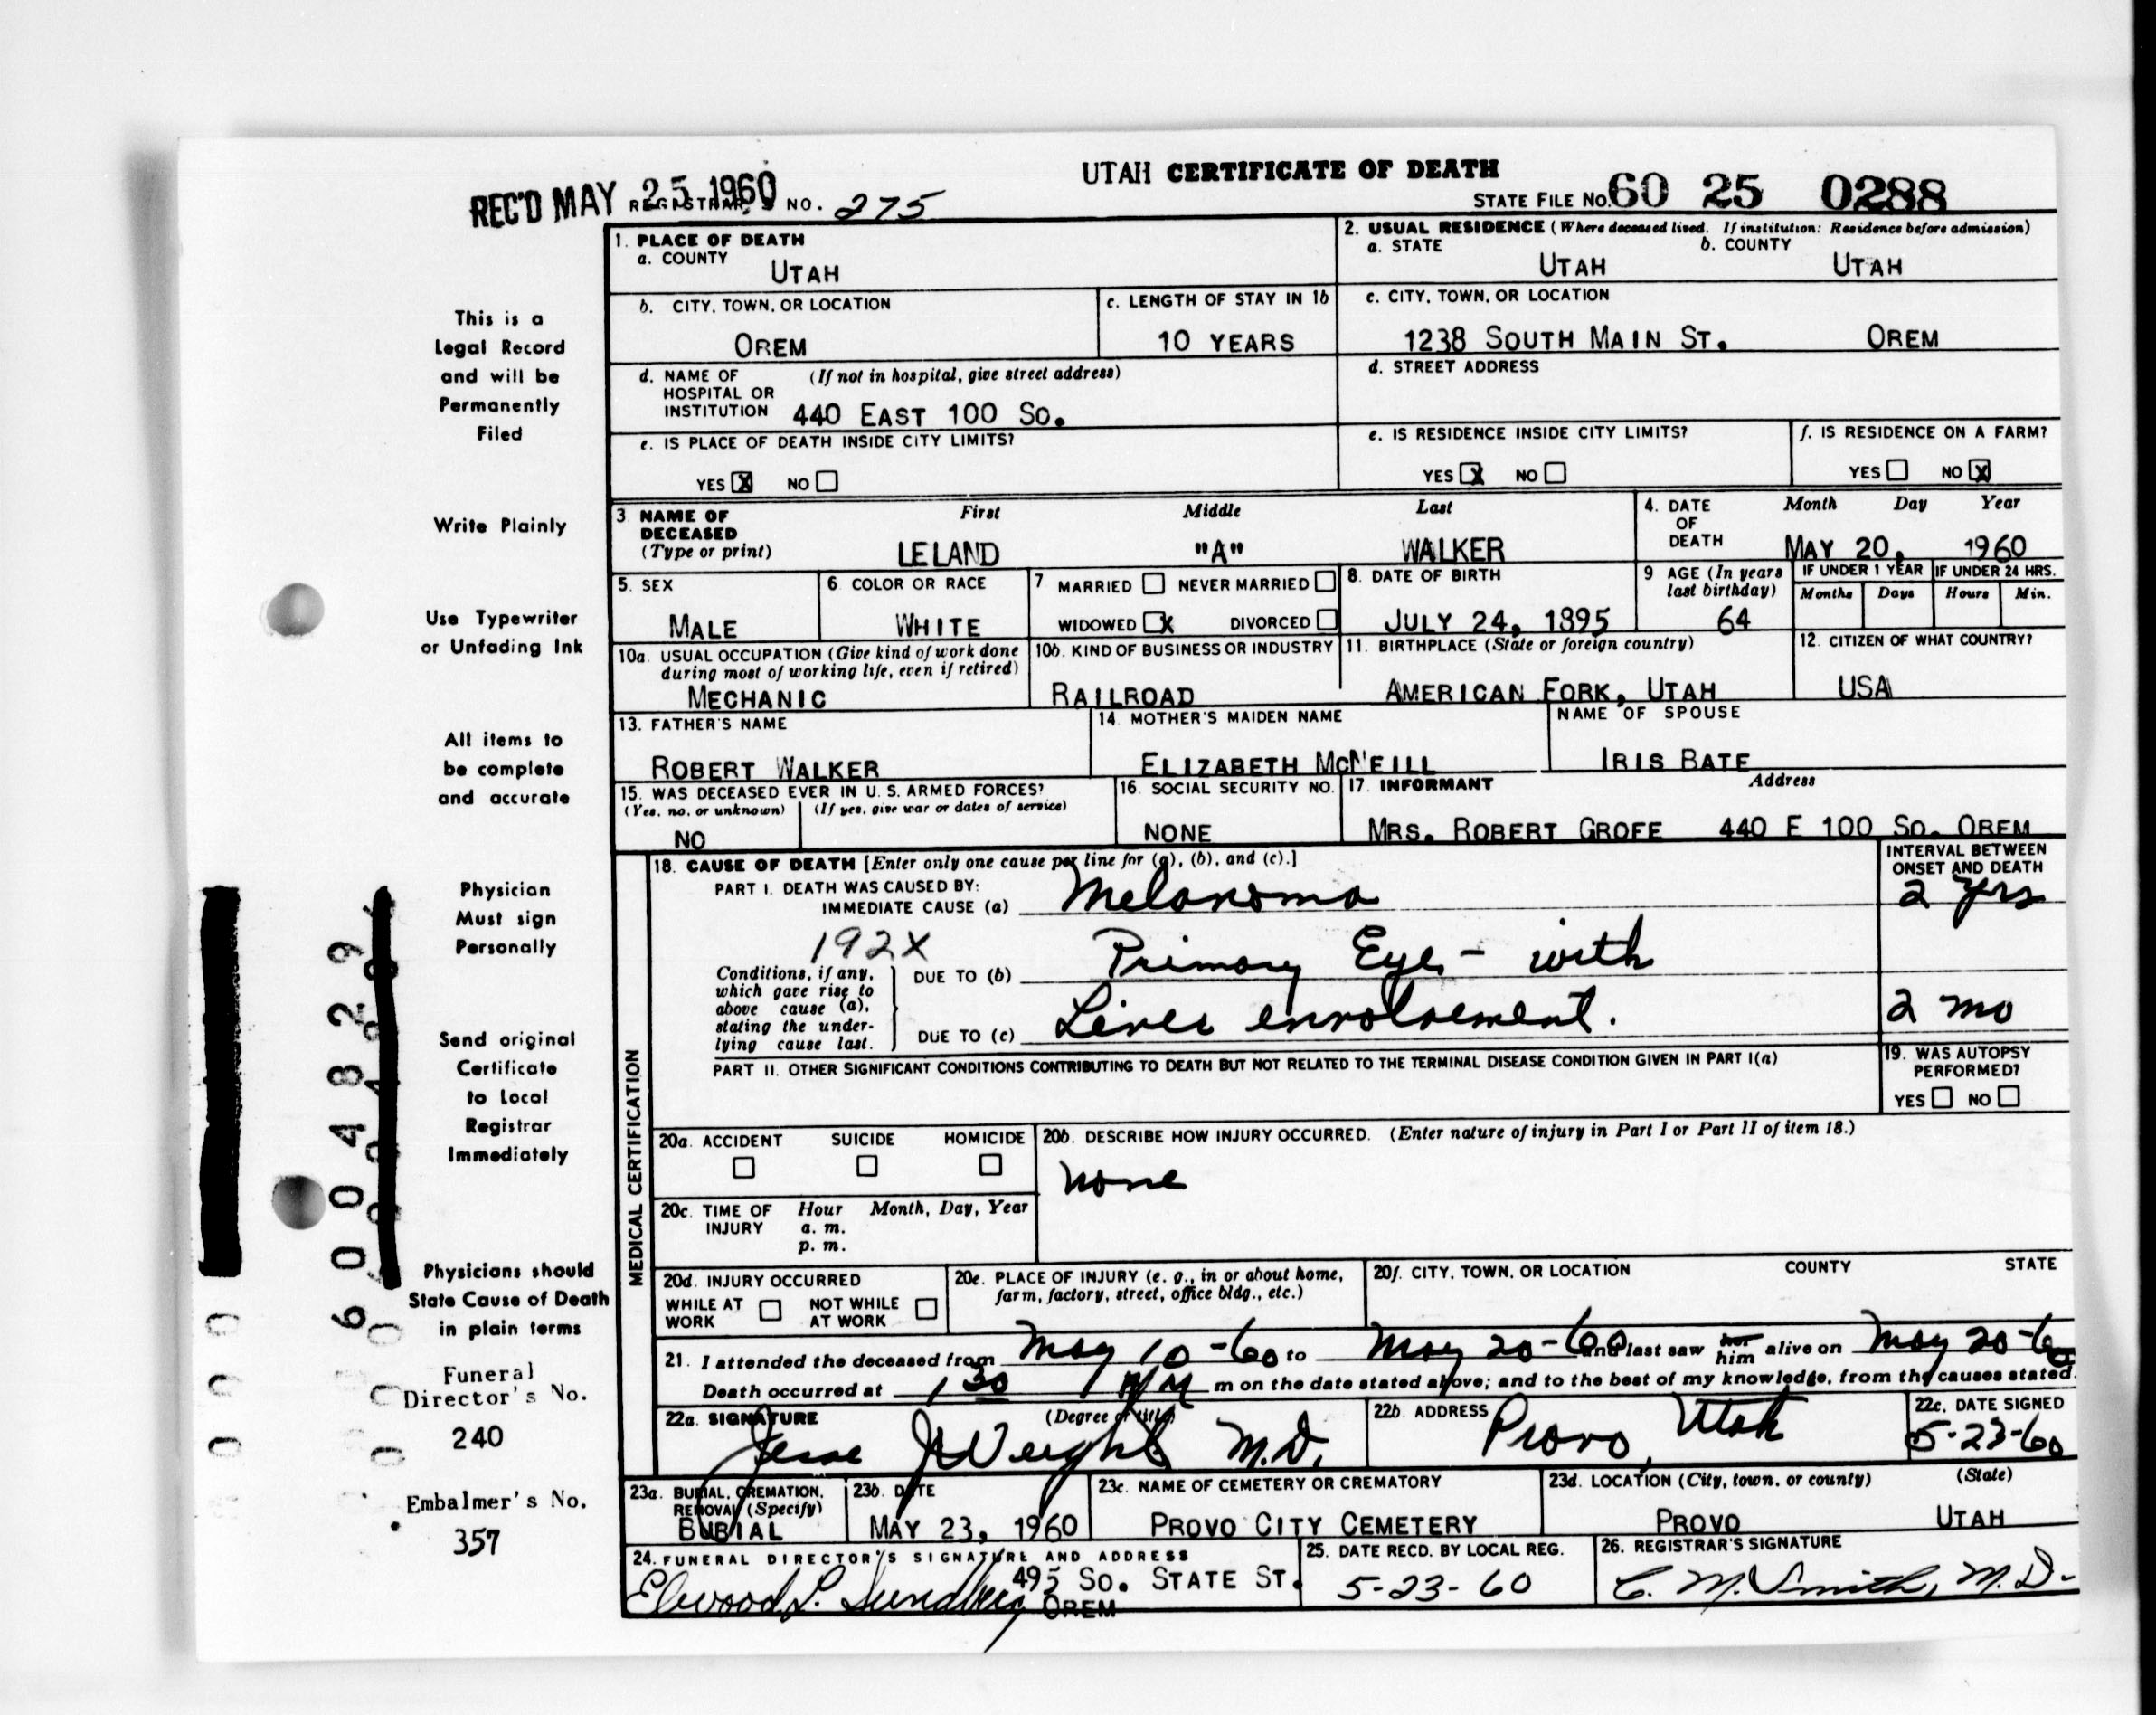 UTAH CERTIFICATE OF DEATH
REC'D MAY 25 1960 REGISTRAR'S NO. 275
STATE FILE NO. 60 25 0288
1. PLACE OF DEATH
a. COUNTY
UTAH
2. USUAL RESIDENCE (Where deceased lived. If institution: Residence before admission)
a. STATE b. COUNTY
UTAH UTAH
b. CITY, TOWN, OR LOCATION
OREM
c. LENGTH OF STAY IN 1b
10 YEARS
c. CITY, TOWN, OR LOCATION
1238 SOUTH MAIN ST. OREM
d. NAME OF (If not in hospital, give street address)
HOSPITAL OR
INSTITUTION 440 EAST 100 SO.
d. STREET ADDRESS
e. IS PLACE OF DEATH INSIDE CITY LIMITS?
YES X NO
e. IS RESIDENCE INSIDE CITY LIMITS?
YES X NO
f. IS RESIDENCE ON A FARM?
YES NO X
3. NAME OF
DECEASED
(Type or print)
First Middle Last
LELAND "A" WALKER
4. DATE
OF
DEATH
Month Day Year
MAY 20, 1960
5. SEX
MALE
6. COLOR OR RACE
WHITE
7 MARRIED NEVER MARRIED
WIDOWED X DIVORCED
8. DATE OF BIRTH
JULY 24, 1895
9 AGE (In years
last birthday)
64
IF UNDER 1 YEAR IF UNDER 24 HRS.
Months Days Hours Min.
10a. USUAL OCCUPATION (Give kind of work done
during most of working life, even if retired)
MECHANIC
10b. KIND OF BUSINESS OR INDUSTRY
RAILROAD
11. BIRTHPLACE (State or foreign country)
AMERICAN FORK, UTAH
12. CITIZEN OF WHAT COUNTRY?
USA
13. FATHER'S NAME
ROBERT WALKER
14. MOTHER'S MAIDEN NAME
ELIZABETH MCNEILL
NAME OF SPOUSE
IRIS BATE
15. WAS DECEASED EVER IN U. S. ARMED FORCES?
(Yes, no, or unknown) (If yes, give war or dates of service)
NO
16. SOCIAL SECURITY NO.
NONE
17. INFORMANT Address
MRS. ROBERT GROFE 440 E 100 SO. OREM
MEDICAL CERTIFICATION
18. CAUSE OF DEATH [Enter only one cause per line for (a), (b), and (c).]
INTERVAL BETWEEN
ONSET AND DEATH
PART I. DEATH WAS CAUSED BY:
IMMEDIATE CAUSE (a) Melanoma 2 yrs
192X
Conditions, if any,
which gave rise to
above cause (a),
stating the under-
lying cause last.
DUE TO (b) Primary Eye - with
DUE TO (c) Liver envolvement. 2 mo
PART II. OTHER SIGNIFICANT CONDITIONS CONTRIBUTING TO DEATH BUT NOT RELATED TO THE TERMINAL DISEASE CONDITION GIVEN IN PART I(a)
19. WAS AUTOPSY
PERFORMED?
YES NO
20a. ACCIDENT SUICIDE HOMICIDE
20b. DESCRIBE HOW INJURY OCCURRED. (Enter nature of injury in Part I or Part II of item 18.)
None
20c. TIME OF Hour Month, Day, Year
INJURY a. m.
p. m.
20d. INJURY OCCURRED
WHILE AT NOT WHILE
WORK AT WORK
20e. PLACE OF INJURY (e. g., in or about home,
farm, factory, street, office bldg., etc.)
20f. CITY, TOWN, OR LOCATION COUNTY STATE
21. I attended the deceased from May 10-60 to May 20-60 and last saw her him alive on May 20-60
Death occurred at 1 30 m on the date stated above; and to the best of my knowledge, from the causes stated.
22a. SIGNATURE (Degree or title)
Jesse J Weight M.D.
22b. ADDRESS
Provo, Utah
22c. DATE SIGNED
5-23-60
23a. BURIAL, CREMATION,
REMOVAL (Specify)
BURIAL
23b. DATE
MAY 23, 1960
23c. NAME OF CEMETERY OR CREMATORY
PROVO CITY CEMETERY
23d. LOCATION (City, town, or county) (State)
PROVO UTAH
24. FUNERAL DIRECTOR'S SIGNATURE AND ADDRESS
Elwood L. Sundberg 495 SO. STATE ST.
OREM
25. DATE RECD. BY LOCAL REG.
5-23-60
26. REGISTRAR'S SIGNATURE
C. M. Smith, M.D.
This is a
Legal Record
and will be
Permanently
Filed
Write Plainly
Use Typewriter
or Unfading Ink
All items to
be complete
and accurate
Physician
Must sign
Personally
Send original
Certificate
to Local
Registrar
Immediately
Physicians should
State Cause of Death
in plain terms
Funeral
Director's No.
240
Embalmer's No.
357
6004829